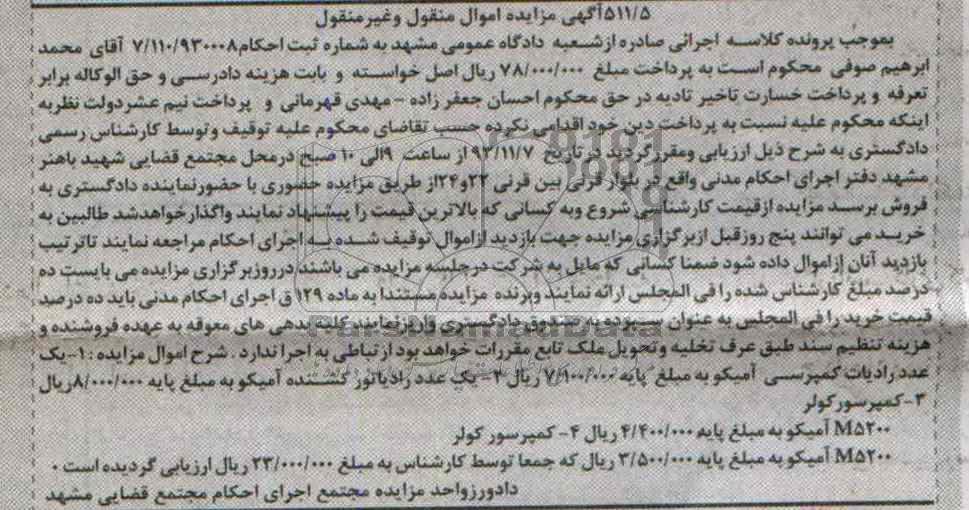 ۵۱۱/۵آگهی مزایده اموال منقول وغیرمنقول
بموجب پرونده کلاسه اجرائی صادره ازشعبه دادگاه عمومی مشهد به شماره ثبت احکام۷/۱۱۰/۹۳۰۰۰۸ آقای محمد
ابرهیم صوفی محکوم است به پرداخت مبلغ ۷۸/۰۰۰/۰۰۰ ریال اصل خواسته و بابت هزینه دادرسی و حق الوکاله برابر
تعرفه و پرداخت خسارت تاخیر تادیه در حق محکوم احسان جعفر زاده – مهدی قهرمانی و پرداخت نیم عشردولت نظربه
اینکه محکوم علیه نسبت به پرداخت دین خود اقدامی نکرده حسب تقاضای محکوم علیه توقیف وتوسط کارشناس رسمی
دادگستری به شرح ذیل ارزیابی ومقررگردید در تاریخ ۹۳/۱۱/۷ از ساعت ۹الی ۱۰ صبح درمحل مجتمع قضایی شهید باهنر
مشهد دفتر اجرای احکام مدنی واقع در بلوار قرنی بین قرنی ۲۲و۲۴از طریق مزایده حضوری با حضورنماینده دادگستری به
فروش برسد مزایده ازقیمت کارشناسی شروع وبه کسانی که بالاترین قیمت را پیشنهاد نمایند واگذارخواهدشد طالبین به
خرید می توانند پنج روزقبل ازبرگزاری مزایده جهت بازدید ازاموال توقیف شده به اجرای احکام مراجعه نمایند تاترتیب
بازدید آنان ازاموال داده شود ضمنا کسانی که مایل به شرکت درجلسه مزایده می باشند درروزبرگزاری مزایده می بایست ده
درصد مبلغ کارشناس شده را فی المجلس ارائه نمایند وبرنده مزایده مستندا به ماده ۱۲۹ ق اجرای احکام مدنی باید ده درصد
قیمت خرید را فی المجلس به عنوان سپرده به صندوق دادگستری واریزنمایند کلیه بدهی های معوقه به عهده فروشنده و
هزینه تنظیم سند طبق عرف تخلیه وتحویل ملک تابع مقررات خواهد بود ارتباطی به اجرا ندارد . شرح اموال مزایده : ۱-یک
عدد رادیات کمپرسی آمیکو به مبلغ پایه ۷/۱۰۰/۰۰۰ ریال ۲- یک عدد رادیاتور کشنده آمیکو به مبلغ پایه ۸/۰۰۰/۰۰۰ریال
۳-کمپرسورکولر
M۵۲۰۰ آمیکو به مبلغ پایه ۴/۴۰۰/۰۰۰ ریال ۴- کمپرسور کولر
M۵۲۰۰ آمیکو به مبلغ پایه ۳/۵۰۰/۰۰۰ ریال که جمعا توسط کارشناس به مبلغ ۲۳/۰۰۰/۰۰۰ ریال ارزیابی گردیده است .
دادورزواحد مزایده مجتمع اجرای احکام مجتمع قضایی مشهد